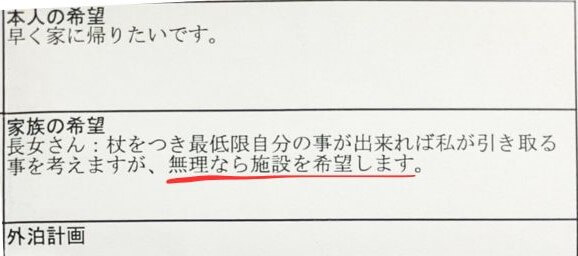 本人の希望
早く家に帰りたいです。
家族の希望
長女さん：杖をつき最低限自分の事が出来れば私が引き取る
事を考えますが、無理なら施設を希望します。
外泊計画